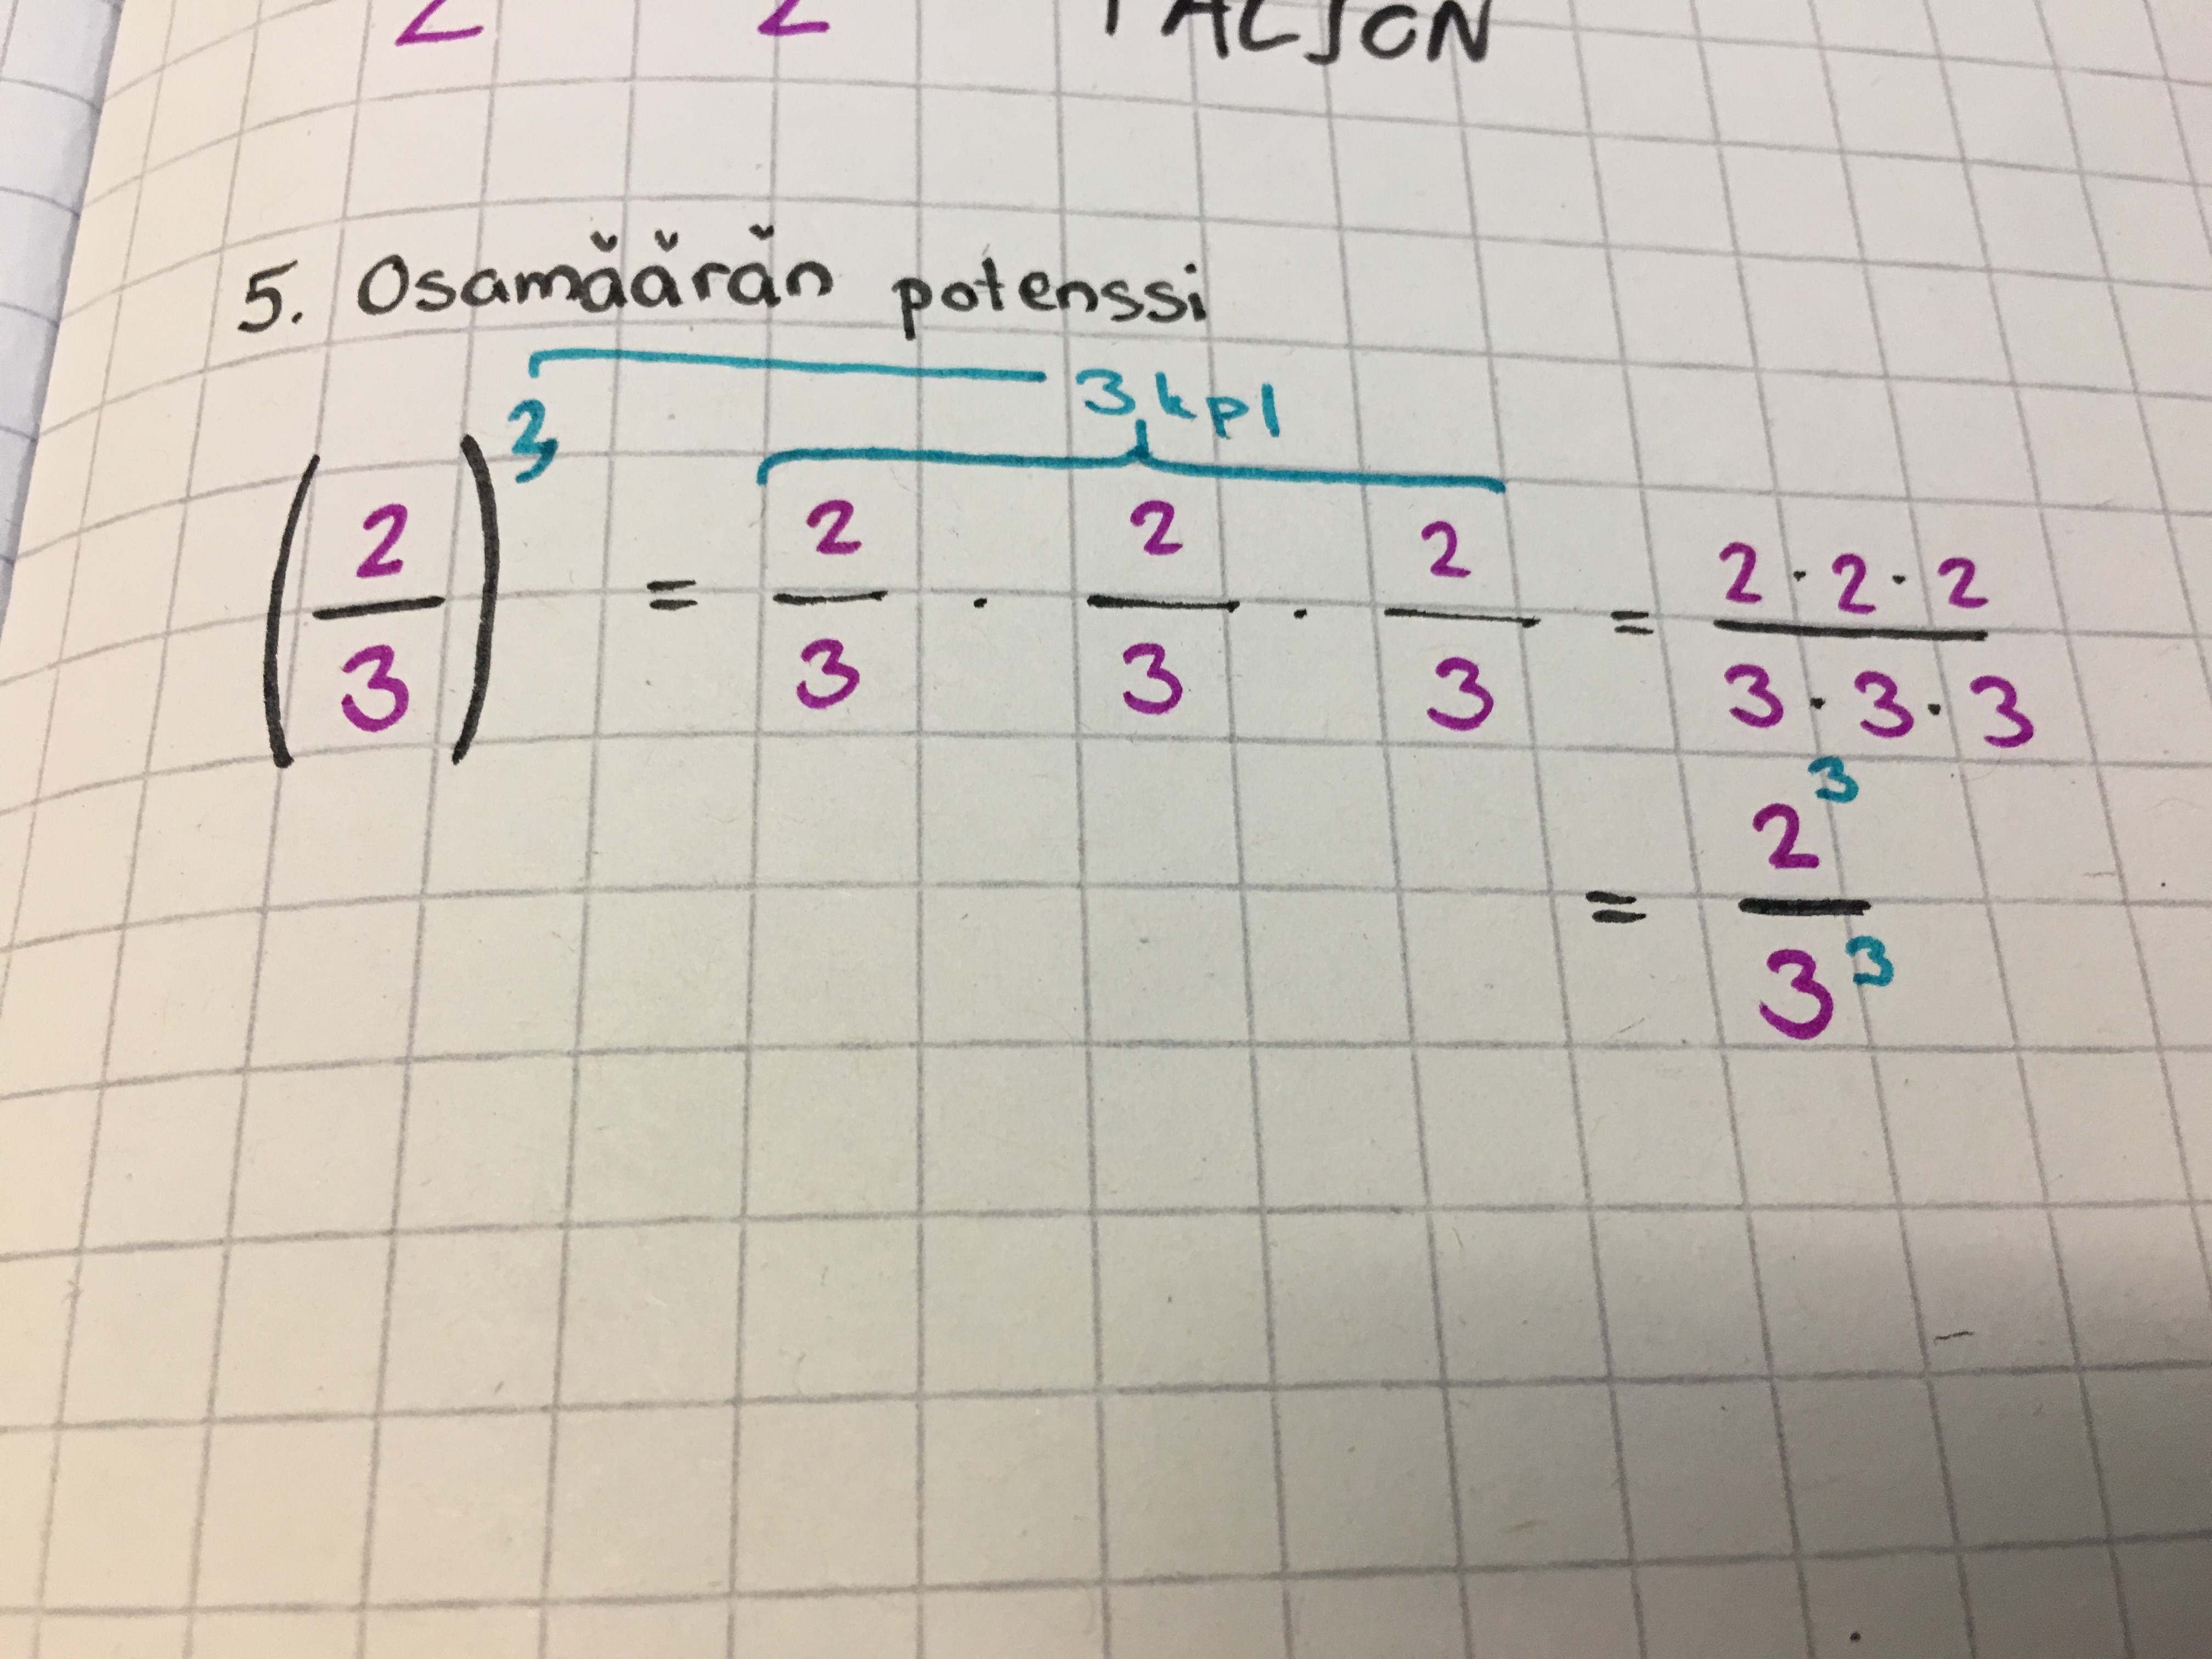 5. Osamäärän potenssi
3 kpl
(2/3)³ = 2/3 · 2/3 · 2/3 = 2·2·2/3·3·3
= 2³/3³